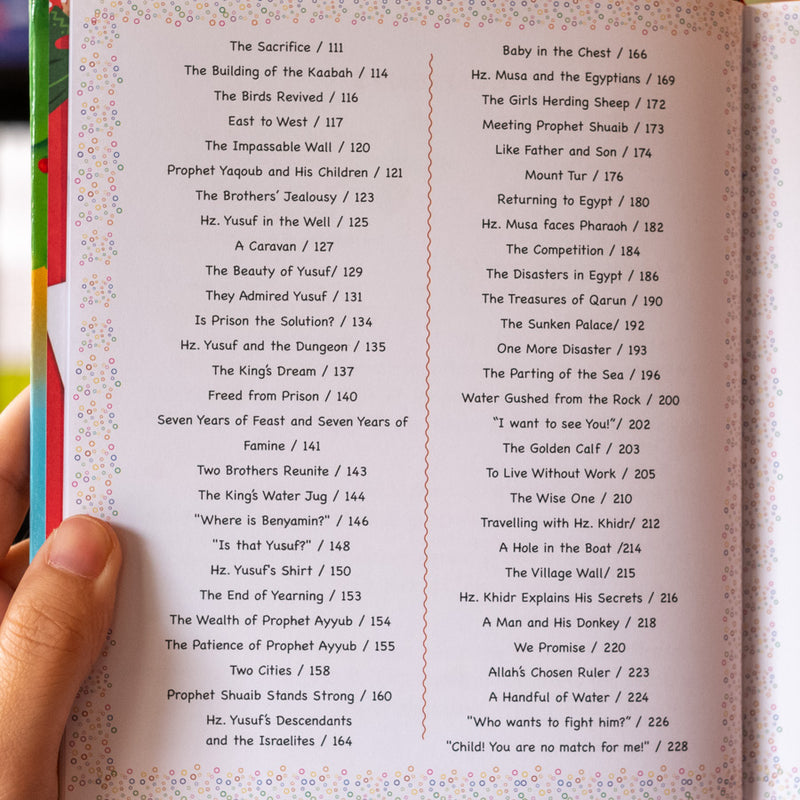 The Sacrifice / 111
The Building of the Kaabah / 114
The Birds Revived / 116
East to West / 117
The Impassable Wall / 120
Prophet Yaqoub and His Children / 121
The Brothers' Jealousy / 123
Hz. Yusuf in the Well / 125
A Caravan / 127
The Beauty of Yusuf/ 129
They Admired Yusuf / 131
Is Prison the Solution? / 134
Hz. Yusuf and the Dungeon / 135
The King's Dream / 137
Freed from Prison / 140
Seven Years of Feast and Seven Years of
Famine / 141
Two Brothers Reunite / 143
The King's Water Jug / 144
"Where is Benyamin?" / 146
"Is that Yusuf?" / 148
Hz. Yusuf's Shirt / 150
The End of Yearning / 153
The Wealth of Prophet Ayyub / 154
The Patience of Prophet Ayyub / 155
Two Cities / 158
Prophet Shuaib Stands Strong / 160
Hz. Yusuf's Descendants
and the Israelites / 164
Baby in the Chest / 166
Hz. Musa and the Egyptians / 169
The Girls Herding Sheep / 172
Meeting Prophet Shuaib / 173
Like Father and Son / 174
Mount Tur / 176
Returning to Egypt / 180
Hz. Musa faces Pharaoh / 182
The Competition / 184
The Disasters in Egypt / 186
The Treasures of Qarun / 190
The Sunken Palace/ 192
One More Disaster / 193
The Parting of the Sea / 196
Water Gushed from the Rock / 200
"I want to see You!"/ 202
The Golden Calf / 203
To Live Without Work / 205
The Wise One / 210
Travelling with Hz. Khidr/ 212
A Hole in the Boat /214
The Village Wall/ 215
Hz. Khidr Explains His Secrets / 216
A Man and His Donkey / 218
We Promise / 220
Allah's Chosen Ruler / 223
A Handful of Water / 224
"Who wants to fight him?" / 226
"Child! You are no match for me!" / 228